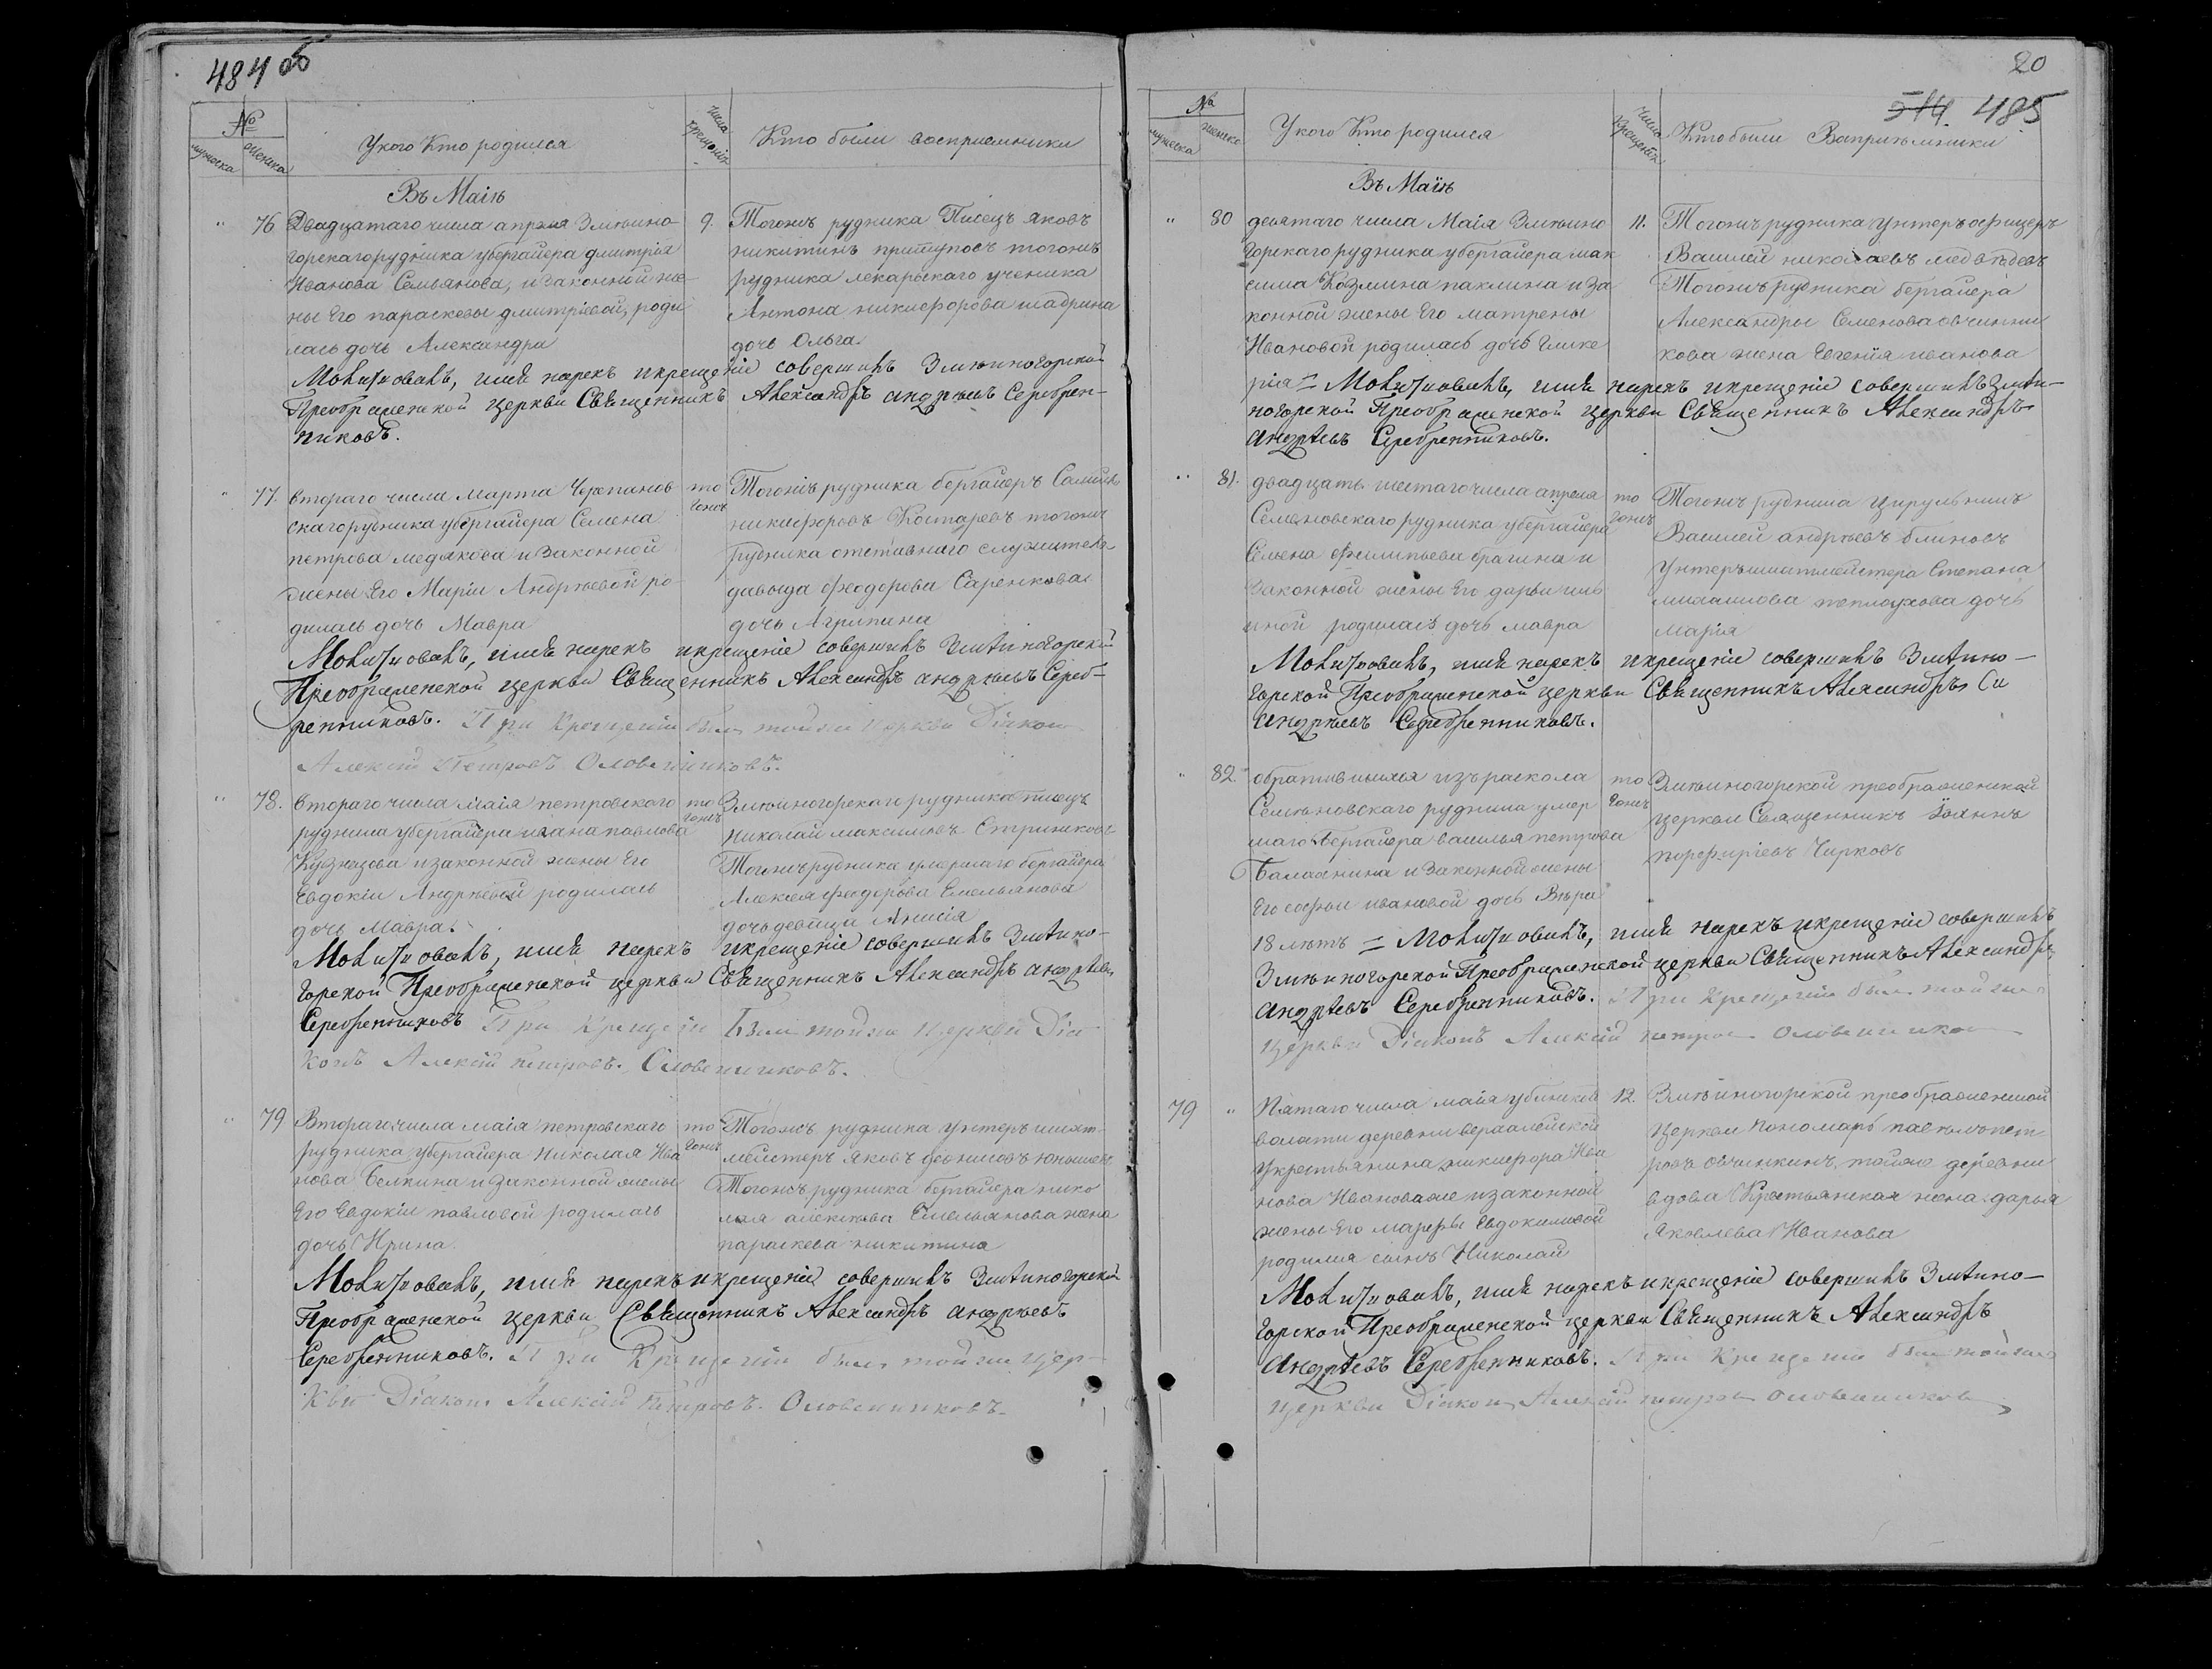 484 об
№
мужеска
женска
У кого Кто родился
числа крещенія
Кто были восприемники
Въ Маіѣ
" 76
Двадцатаго числа апреля Змѣино-
горскаго рудника убергайера дмитрія
Иванова Семьянова, и законной же-
ны Его параскевы дмитріевой, роди
лась дочь Александра
9.
Тогожъ рудника Писецъ яковъ
никитинъ притуповъ тогожъ
рудника лекарьскаго ученика
Антона никифорова шабрина
дочь Ольга
Молитвовалъ, имя нарекъ икрещеніе совершилъ Змѣиногорской
Преображенской церкви Священникъ Александръ андреевъ Серебрен-
никовъ.
" 77.
втораго числа Марта Черепанов
скаго рудника убергайера Семена
петрова медякова и Законной
жены Его Маріи Андрѣевой ро-
дилась дочь Мавра
то
гожъ
Тогожъ рудника бергайеръ Самойло
никифоровъ Костаревъ тогожъ
рудника отставнаго служителя
давыда феодорова Саренкова
дочь Агрипина
Молитвовалъ, имя нарекъ икрещеніе совершилъ Змѣиногорской
Преображенской церкви Священникъ Александръ андреевъ Сереб-
ренниковъ. При Крещеніи былъ тойже церкви Діакон
Алексій Петровъ Оловенниковъ.
" 78.
втораго числа Маія петровскаго
рудника убергайера ивана павлова
Кузнецова и законной жены Его
Евдокіи Андрѣевой родилась
дочь Мавра
то
гожъ
Змѣиногорскаго рудника писецъ
николай максимовъ Стрижковъ
Тогожъ рудника умершаго бергайера
Алексея феодорова Емельянова
дочь девица Анисія
Молитвовалъ, имя нарекъ икрещеніе совершилъ Змѣино-
горской Преображенской церкви Священникъ Александръ андреевъ
Серебренниковъ При Крещеніи былъ тойже церкви Діа
конъ Алексій петровъ. Оловенниковъ.
" 79
Втораго числа маія петровскаго
рудника убергайера николая Ива
нова Белкина и законной жены
Его Евдокіи павловой родилась
дочь Ирина
то
гожъ
Тогожъ рудника унтеръ шихт-
мейстеръ яковъ деонисовъ
Тогожъ рудника бергайера нико
лая алексеева Емельянова жена
параскева никитина
Молитвовалъ, имя нарекъ икрещеніе совершилъ Змѣиногорской
Преображенской церкви Священникъ Александръ андреевъ
Серебренниковъ. При Крещеніи былъ тойже цер-
кви Діаконъ Алексій Петровъ. Оловенниковъ.
20
514. 485
№
мужеска
женска
У кого Кто родился
числа Крещенія
Кто были Воприѣмники
Въ Маіѣ
" 80
девятаго числа Маія Змѣино
Горскаго рудника убергайера мак
сима Козмина паклина и за
конной жены Его матрены
Ивановой родилась дочь Глике
рія = Молитвовалъ, имя нарекъ икрещеніе совершилъ Змѣи-
11.
Тогожъ рудника унтеръ офицеръ
Василей николаевъ медвѣдевъ
Тогожъ рудника бергайера
Александры Семенова овчинни
кова жена Евгенія иванова
ногорской Преображенской церкви Священникъ Александръ
андреевъ Серебренниковъ.
" 81.
двадцать шестаго числа апреля
Семеновскаго рудника убергайера
Семена филипьева брагина и
Законной жены Его дарьи иль
иной родилась дочь мавра
то
гожъ
Тогожъ рудника Цирульникъ
Василей андрѣевъ блиновъ
Унтеръшихтмейстера Степана
михаилова теплоухова дочь
марія
Молитвовалъ, имя нарекъ икрещеніе совершилъ Змѣино-
горской Преображенской церкви Священникъ Александръ Се
андреевъ Серебренниковъ.
" 82.
обратившаяся изъ раскола
Семеновскаго рудника умер
шаго Бергайера василья петрова
Балахнина и Законной жены
Его софьи ивановой дочь Вѣра
18 лѣтъ = Молитвовалъ, имя нарекъ икрещеніе совершилъ
то
гожъ
Змѣиногорской преображенской
церкви Священникъ Іоаннъ
порфиріевъ Чирковъ
Змѣиногорской Преображенской церкви Священникъ Александръ
андреевъ Серебренниковъ. При Крещеніи былъ тойже
церкви Діаконъ Алексій петров Оловенников
79 "
Пятаго числа маія убинской
волости деревни верхалейской
Укрестьянина никифора Ива
нова Ивановаже и законной
жены Его марфы Евдокимовой
родился сынъ Николай
12.
Змѣиногорской преображенской
церкви Пономарь павелъ пет
ровъ овчинкинъ тойже деревни
вдова Крестьянская жена дарья
Яковлева Иванова
Молитвовалъ, имя нарекъ икрещеніе совершилъ Змѣино-
горской Преображенской церкви Священникъ Александръ
андреевъ Серебренниковъ. При Крещеніи былъ тойже
церкви Діаконъ Алексій петров Оловенников